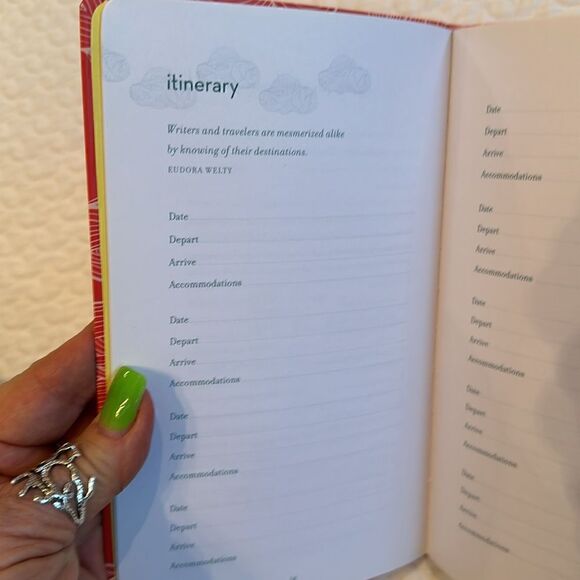 itinerary
Writers and travelers are mesmerized alike
by knowing of their destinations.
EUDORA WELTY
Date
Depart
Arrive
Accommodations
Date
Depart
Arrive
Accommodations
Date
Depart
Arrive
Accommodations
Date
Depart
Arrive
Accommodations
Date
Depart
Arrive
Accommodations
Date
Depart
Arrive
Accommodations
Date
Depart
Arrive
Accommodations
Date
Depart
Arrive
Accommodations
Date
Depart
Arrive
Accommodations